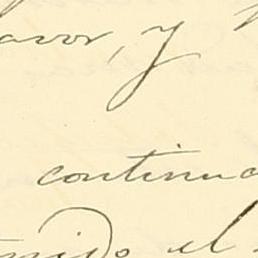 avor, y
continua
mido el